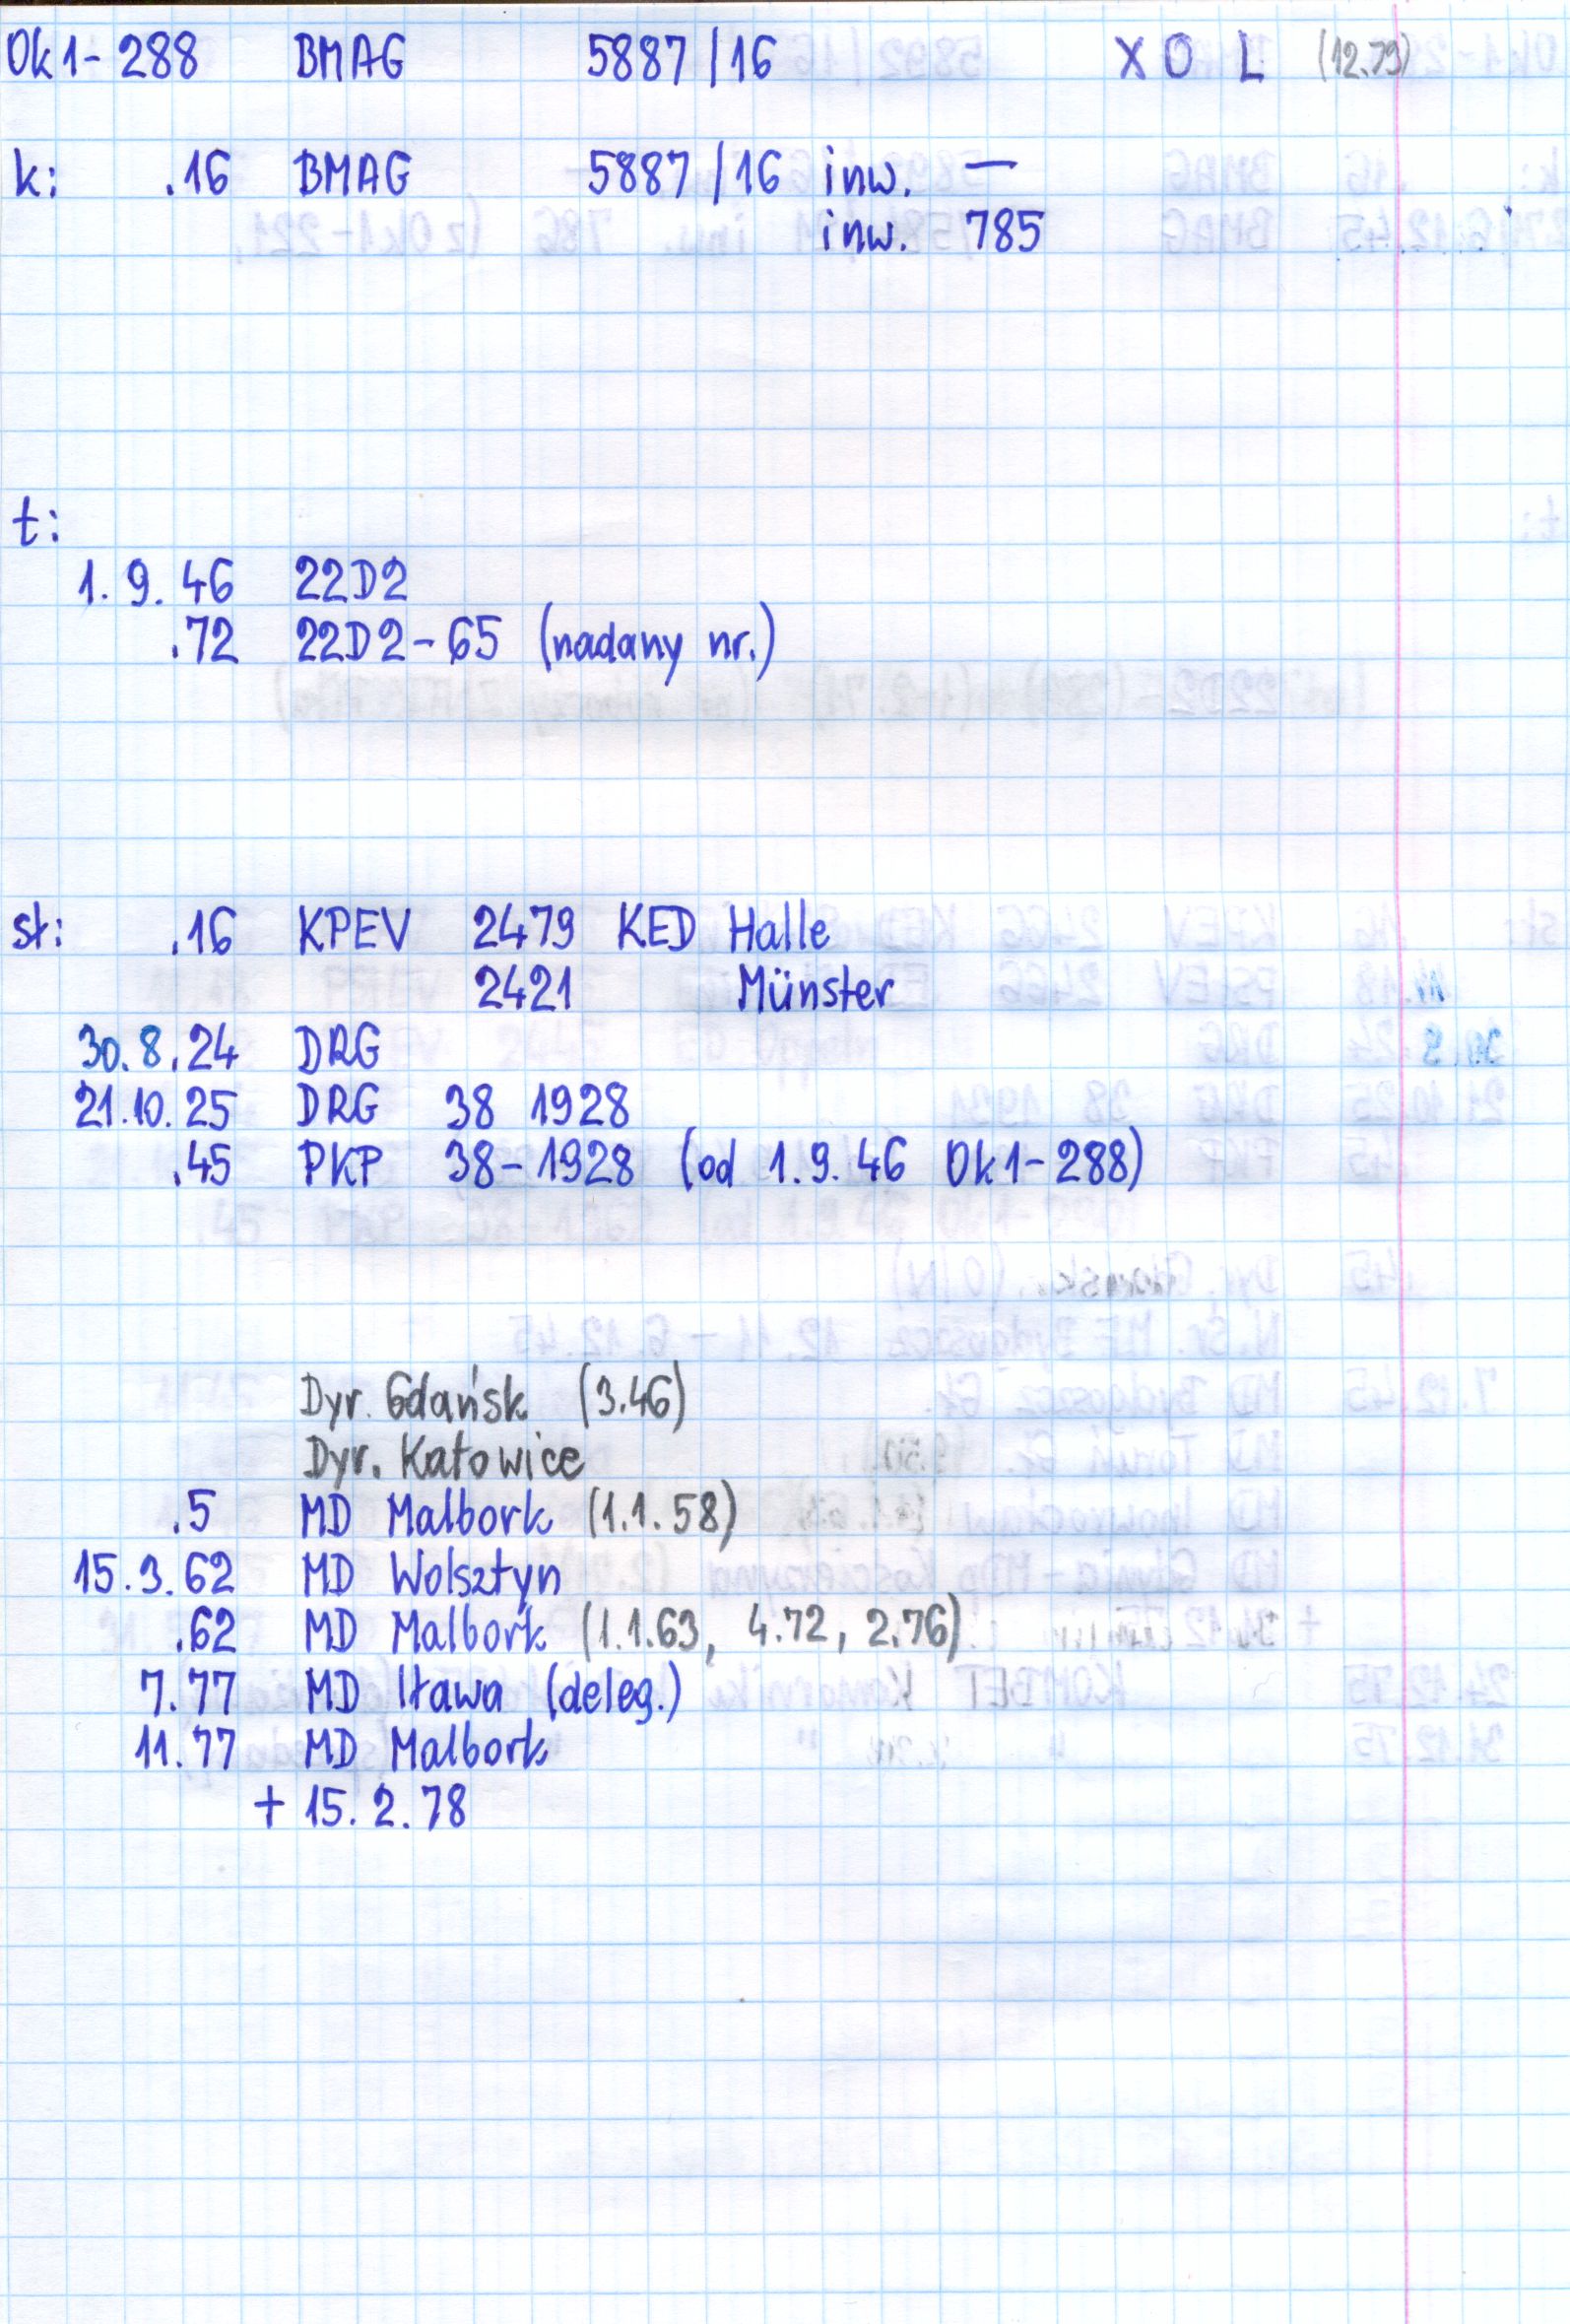 Ok1-288 BMAG 5887/16 X O L (12.79)
k: .16 BMAG 5887/16 inw. —
inw. 785
t:
1.9.46 22D2
.72 22D2-65 (nadany nr.)
st: .16 KPEV 2479 KED Halle
2421 Münster
30.8.24 DRG
21.10.25 DRG 38 1928
.45 PKP 38-1928 (od 1.9.46 Ok1-288)
Dyr. Gdańsk (3.46)
Dyr. Katowice
.5 MD Malbork (1.1.58)
15.3.62 MD Wolsztyn
.62 MD Malbork (1.1.63, 4.72, 2.76)
7.77 MD Iława (deleg.)
11.77 MD Malbork
+ 15.2.78